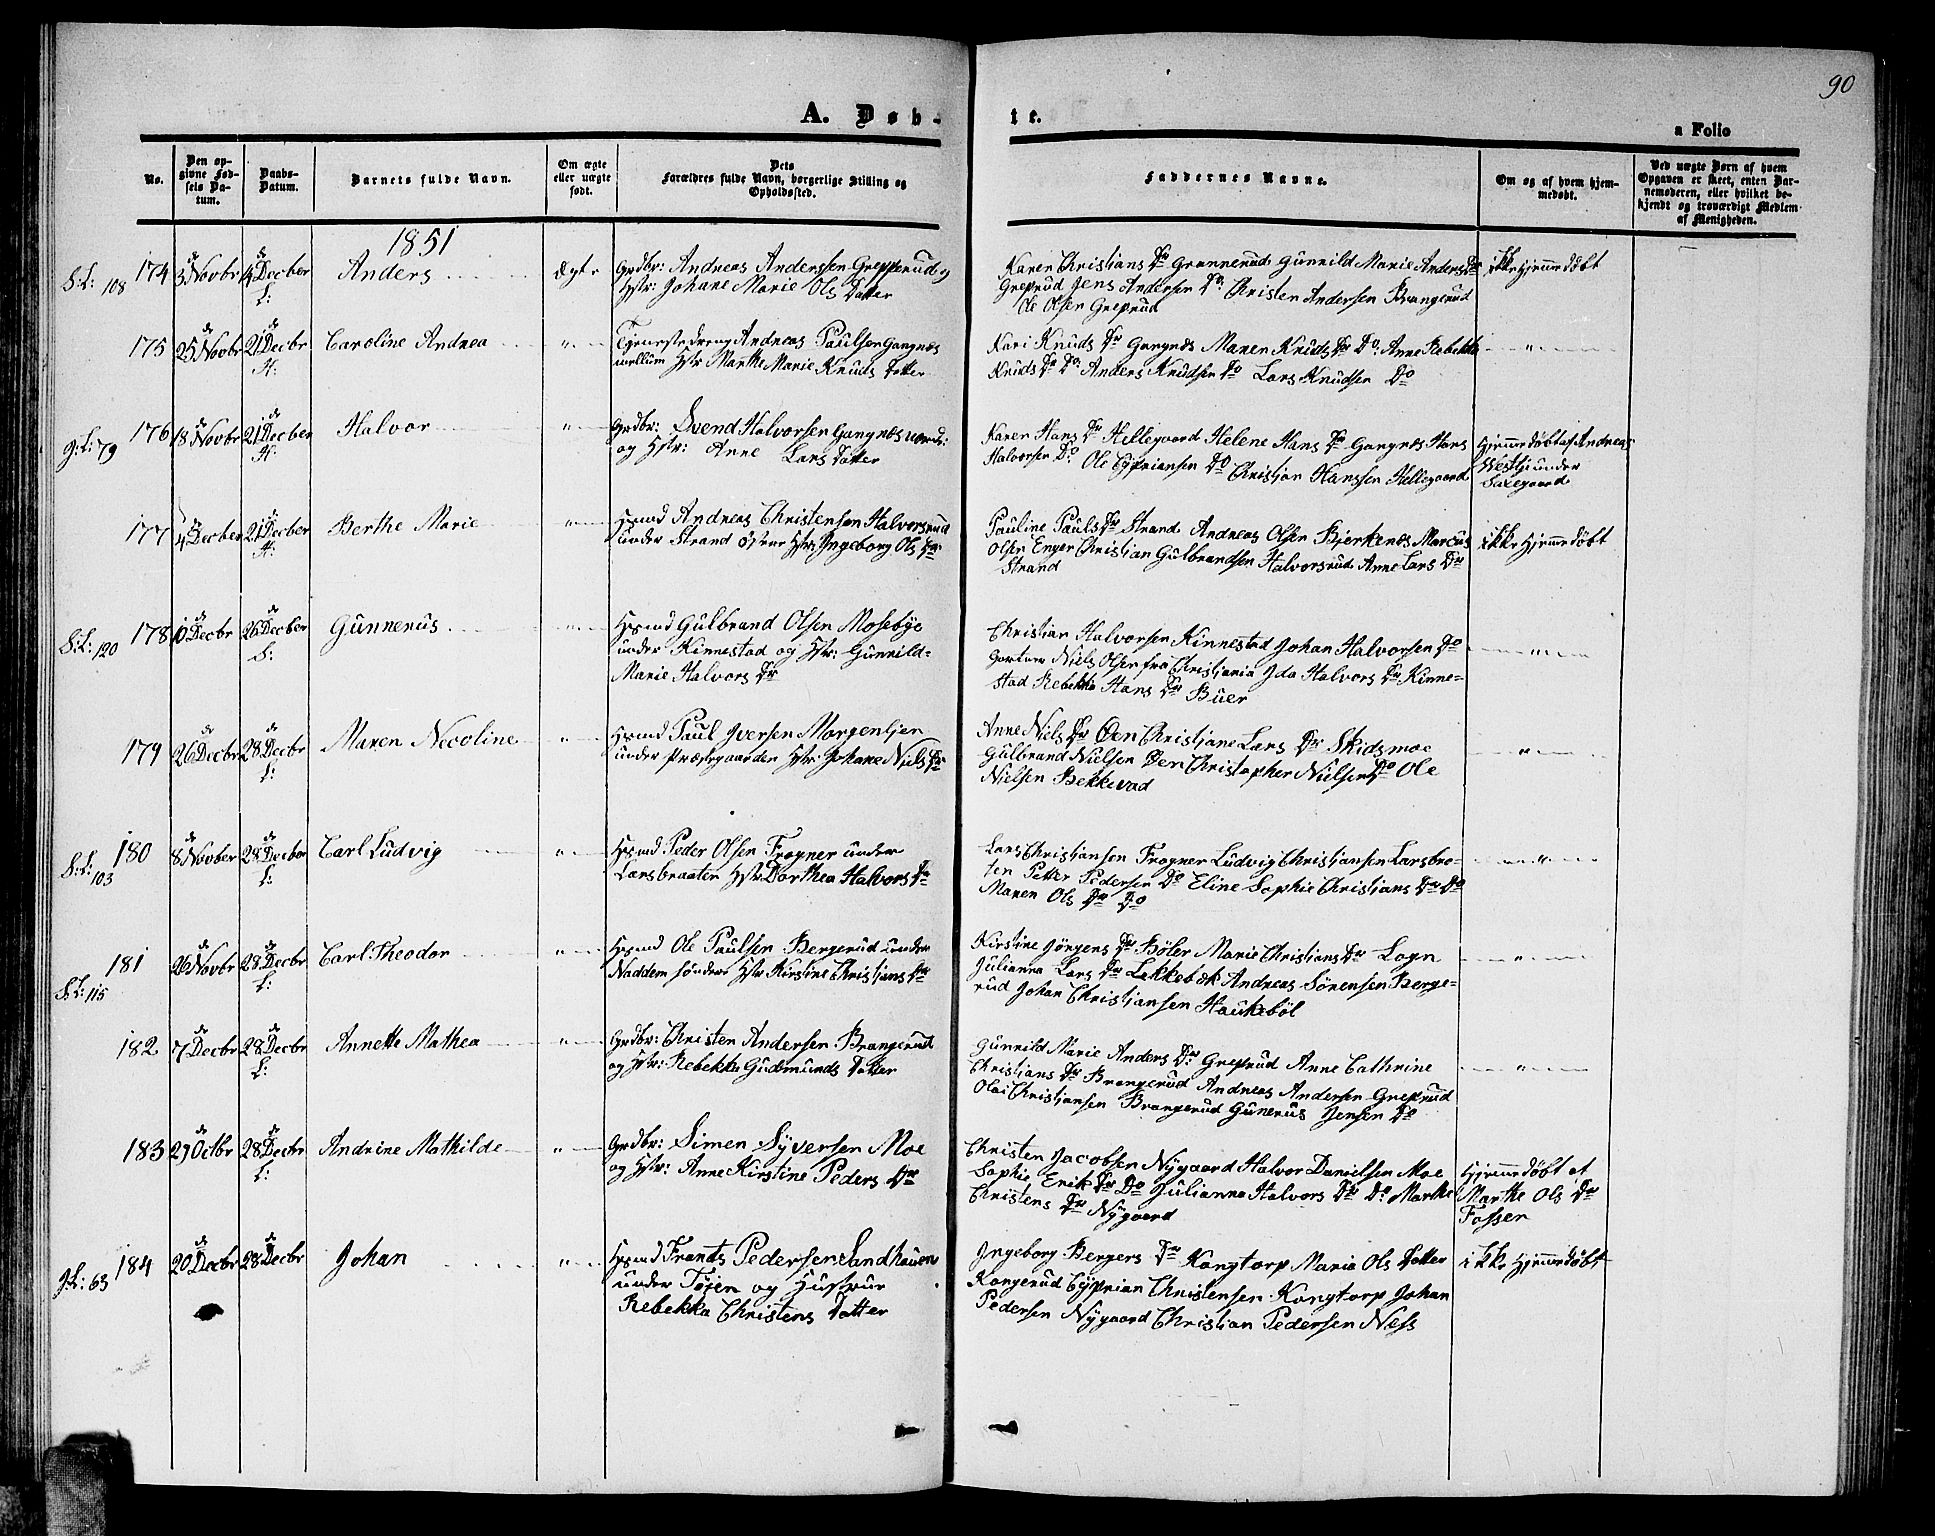 90
A. Døb-
te.
a Folio
No.
Den op-
givne Fød-
sels Da-
tum.
Daabs-
Datum.
Barnets fulde Navn.
Om ægte
eller uægte
født.
Dets
Forældres fulde Navn, borgerlige Stilling og
Opholdssted.
Faddernes Navne.
Om og af hvem hjem-
medøbt.
Ved uægte Børn af hvem
Opgaven er skeet, enten Bar-
nemoderen, eller hvilket be-
kjendt og troværdigt Medlem
af Menigheden.
1851
S:L: 108
174
Anders
Ægte
Grdbr: Andreas Anderssen Greprud og
Hstr: Johane Marie Ols Datter
Karen Christians Dr Grønnerud Gunnild Marie Anders Dr
Greprud Jens Andersen Do: Christen Andersen Brangerud
Ole Olsen Greprud
ikke Hjemmedøbt
175
25 Novbr
21 Decbr
H:
Caroline Andrea
Tjenestedreng Andreas Paulsen Gangnæs
mellum Hstr Marthe Marie Knuds Datter
Kari Knuds Dr Gangnæs Maren Knuds Dr Do: Anne Rebekka
Knuds Dr Do: Anders Knudsen Do Lars Knudsen Do
g:L: 79
176
18 Novbr
21 Decber
H:
Halvor
Grdbr: Svend Halvorsen Gangnæs
og Hstr: Anne Lars Datter
Karen Hans Dr Hellegaard Helene Hans Dr Gangnæs Hans
Halvorsen Do: Ole Cypriansen Do Christian Hanssen Hellegaard
Hjemmedøbt af Andreas
under
Saxegaard
177
4 Decber
21 Decber
H:
Berthe Marie
Hsmd Andreas Christensen Halvorsrud
under Strand østene Hstr: Ingeborg Ols Dr
Pauline Pauls Dr Strand Andreas Olsen Bjerkenæs Marcus
Olsen Enger Christian Gulbrandsen Halvorsrud Anne Lars Dr
Strand
ikke Hjemmedøbt
S:L: 120
178
10 Decbr
26 Decber
S:
Gunnerus
Hsmd Gulbrand Olsen Mosebye
under Kinnestad og Hstr: Gunnild-
Marie Halvors Dr
Christian Halvorsen Kinnestad Johan Halvorsen Do
Gartner Niels Olsen fra Christiania Ida Halvors Dr Kinne=
stad Rebekka Hans Dr Buer
179
26 Decbr
28 Decbr
L:
Maren Necoline
Hsmd Paul Iversen Morgentjen
under Præstegaarden Hstr: Johane Niels Dr
Anne Niels Dr Øen Christiane Lars Dr Skidsmoe
Gulbrand Nielsen Øen Christopher Nielsen Do Ole
Nielsen Bekkevad
S:L: 103
180
8 Novber
28 Decber
L:
Carl Ludvig
Hsmd Peder Olsen Frogner under
Larsbraaten Hstr: Dorthea Halvors Dr
Lars Christiansen Frogner Ludvig Christiansen Larsbro-
ten Petter Pedersen Do Eline Sophie Christians Dr Do
Maren Ols Dr Do
S:L: 115
181
26 Novbr
28 Decbr
L:
Carl Theodor
Hsmd Ole Paulsen Bergerud under
Naddem søndre Hstr Kirstine Christians Dr
Kirstine Jørgens Dr Bøler Marie Christians Dr Logn
Julianna Lars Dr Lekkebek Andreas Sørensen Berge=
rud Johan Christiansen Haukebøl
182
7 Decbr
28 Decbr
L:
Annette Mathea
Grdbr: Christen Andersen Brangerud
og Hstr: Rebekka Gudmunds Datter
Gunnild Marie Anders Dr: Greprud Anne Cathrine
Christians Dr Brangerud Andreas Andersen Greprud
Olai Christiansen Brangerud Gunerus Jensen Do
183
29 Octbr
28 Decbr
L:
Andrine Mathilde
Grdbr: Simen Syversen Moe
og Hstr: Anne Kirstine Peders Dr
Christen Jacobsen Nygaard Halvor Danielsen Moe
Sophie Erik Dr Do Julianna Halvors Dr Do Marthe
Christens Dr Nygaard
Hjemmedøbt af
Marthe Ols Dr
Fossen
g:L: 63
184
20 Decbr
28 Decbr
Johan
Hsmd Frants Pedersen Sandhauen
under Tøien og Hustrue
Rebekka Christens Datter
Ingeborg Bergers Dr Kongtorp Maria Ols Datter
Kongerud Cyprian Christensen Kongtorp Johan
Pedersen Nygaard Christian Pedersen Ness
ikke Hjemmedøbt